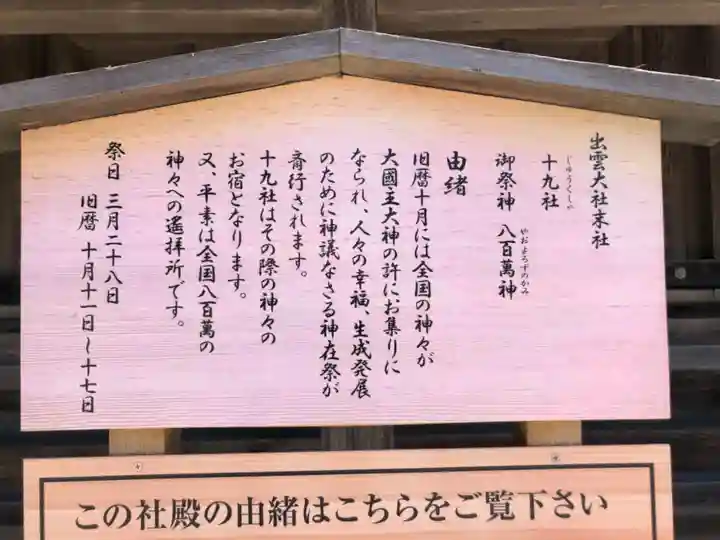 出雲大社末社
十九社
じゅうくしゃ
御祭神 八百萬神
やおよろずのかみ
由緒
旧暦十月には全国の神々が
大國主大神の許にお集りに
なられ、人々の幸福、生成発展
のために神議なさる神在祭が
斎行されます。
十九社はその際の神々の
お宿となります。
又、平素は全国八百萬の
神々への遙拝所です。
祭日 三月二十八日
旧暦 十月十一日~十七日
この社殿の由緒はこちらをご覧下さい